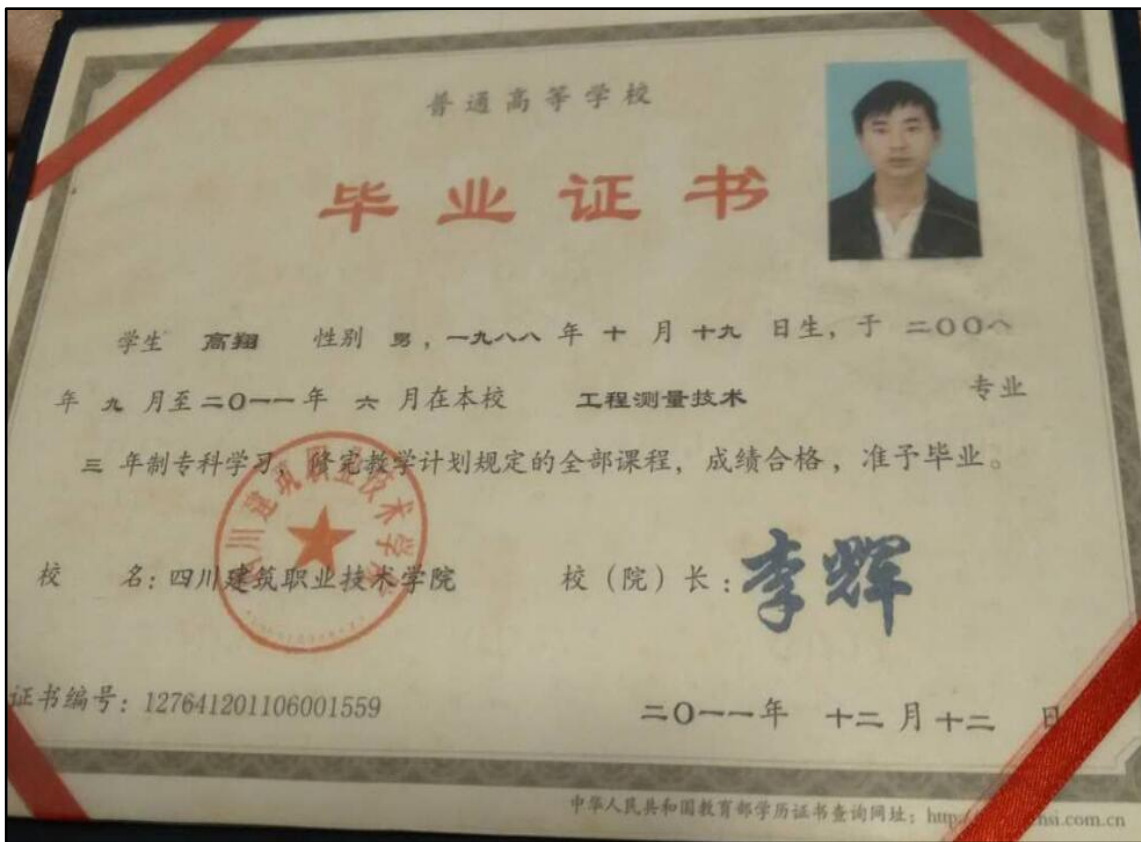 普通高等学校
毕业证书
学生 高翔 性别 男，一九八八 年 十 月 十九 日生，于 二〇〇八
年 九 月至 二〇一一 年 六 月在本校 工程测量技术 专业
三 年制专科学习，修完教学计划规定的全部课程，成绩合格，准予毕业。
四川建筑职业技术学院
校 名：四川建筑职业技术学院 校（院）长：李辉
证书编号：127641201106001559 二〇一一年 十二 月 十二 日
中华人民共和国教育部学历证书查询网址：http:/ nsi.com.cn